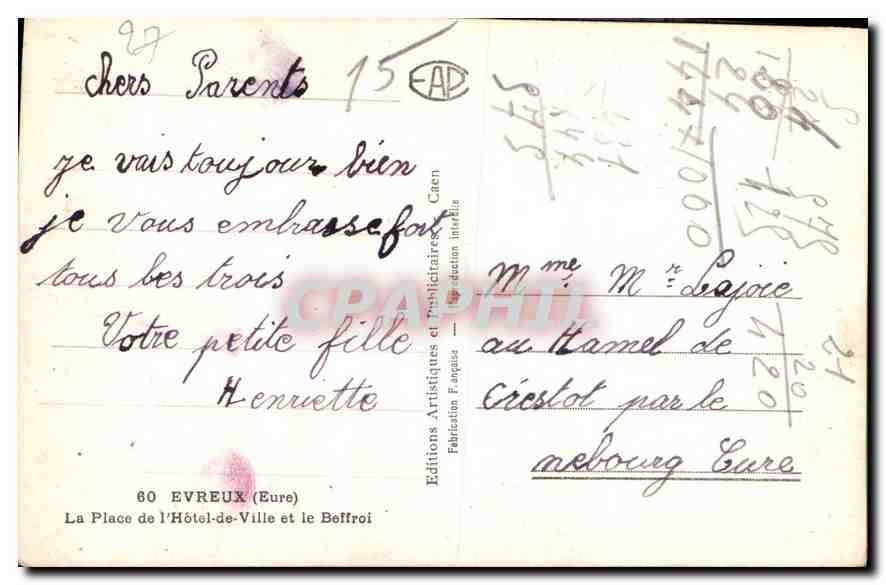 27
chers Parents
15
EAP
je vais toujour bien
je vous embrasse fort
tous les trois
Votre petite fille
Henriette
60 EVREUX (Eure)
La Place de l'Hôtel-de-Ville et le Beffroi
Editions Artistiques et Publicitaires, Caen
Fabrication Française — Reproduction interdite
CPAPHIL
Mme Mr Lajoie
au Hamel de
Crestot par le
nebourg Eure
21
20
420